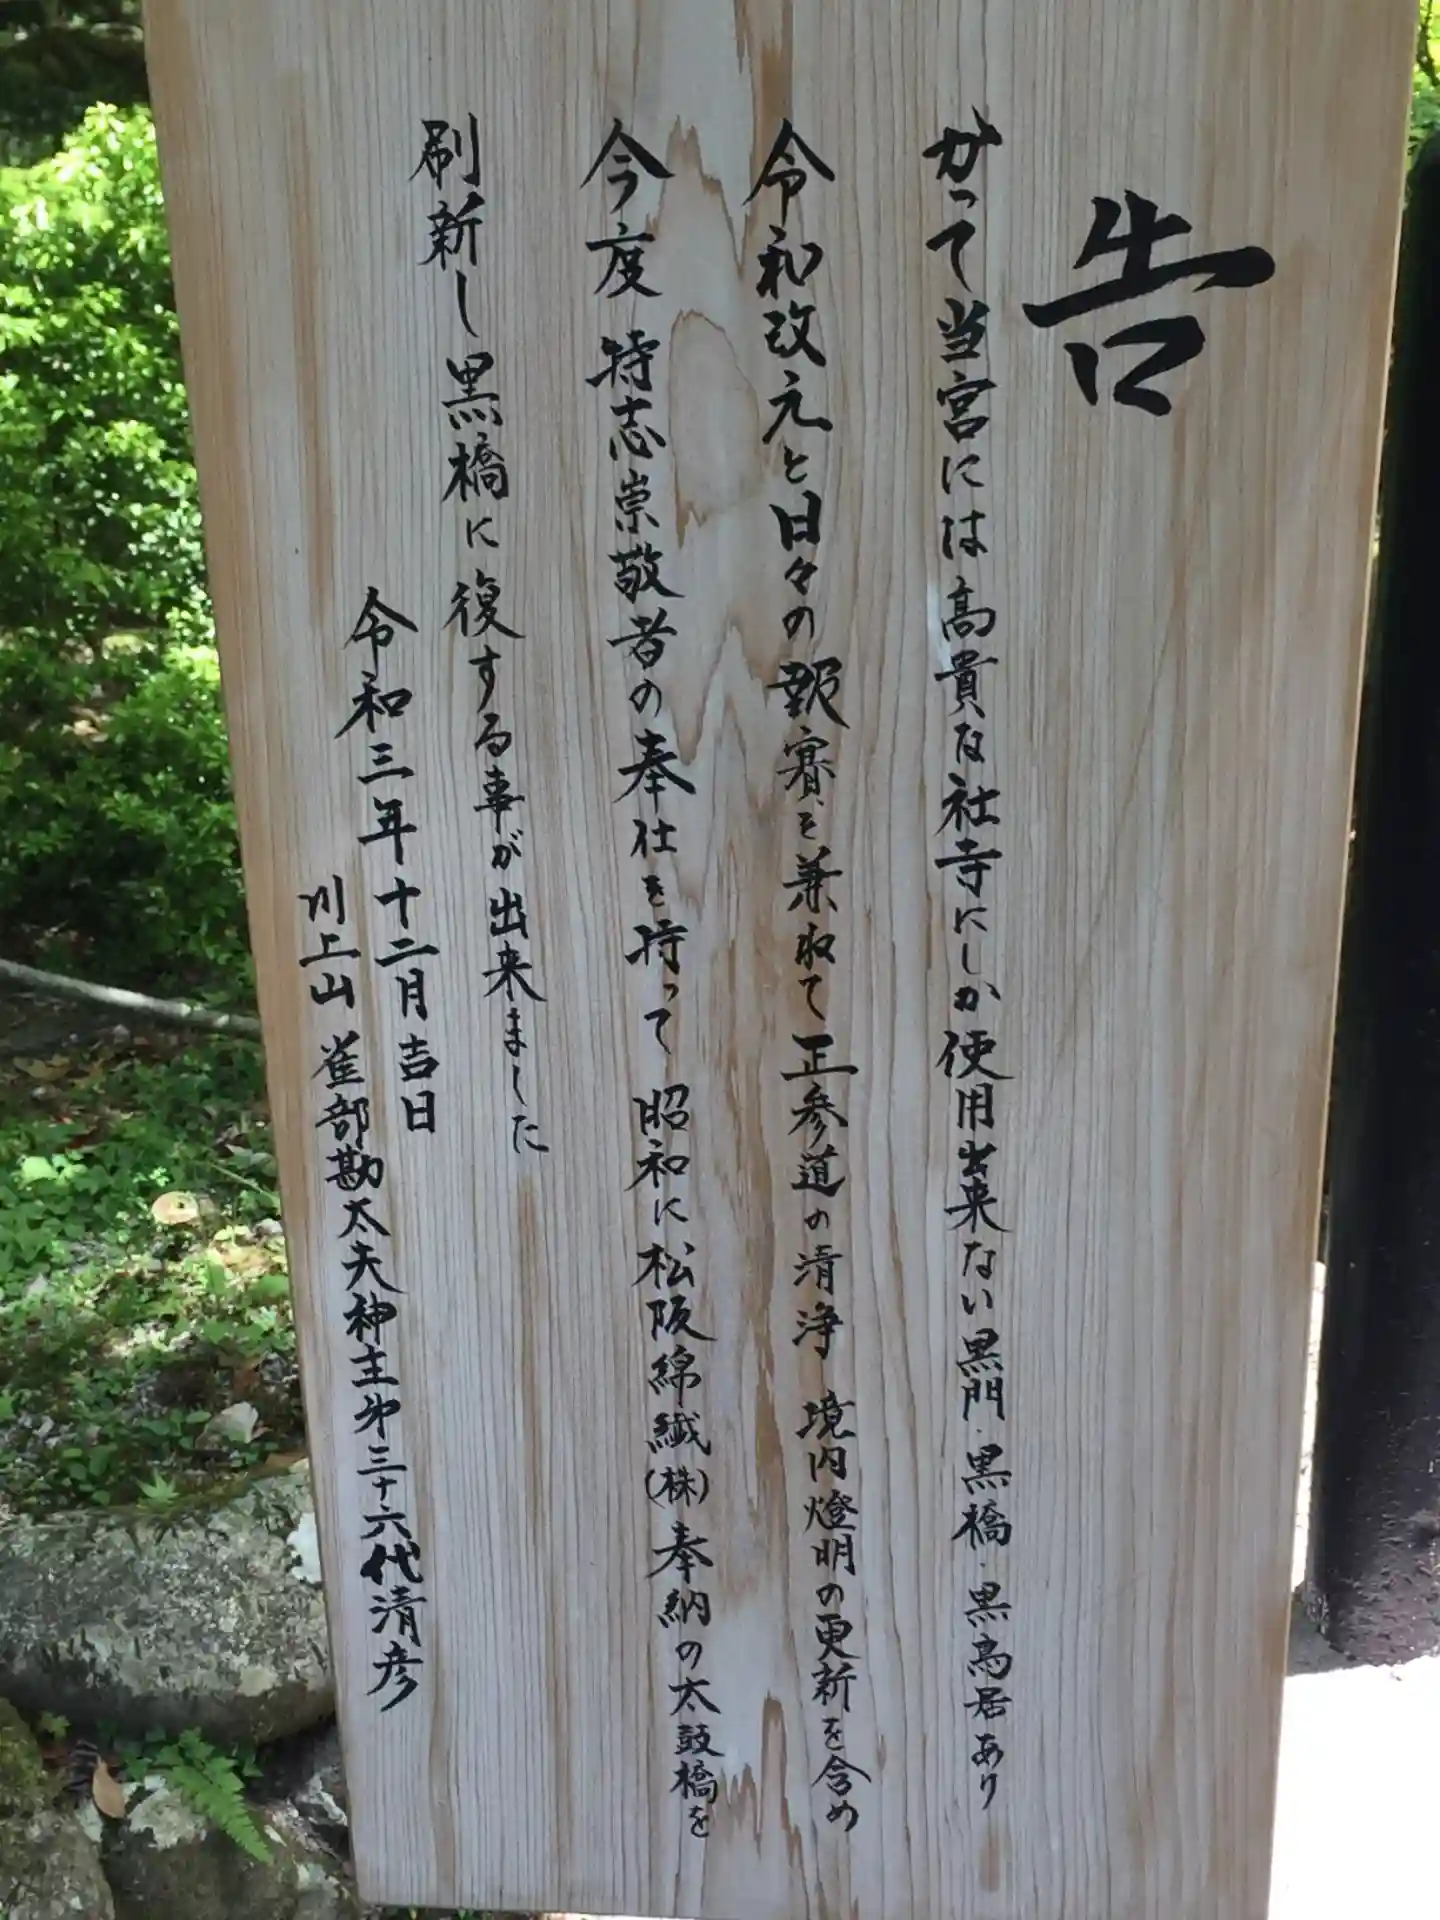 告
かって当宮には高貴な社寺にしか使用出来ない黒門・黒橋・黒鳥居あり
令和改元と日々の報賽を兼ねて正参道の清浄 境内燈明の更新を含め
今度 特志崇敬者の奉仕を持って 昭和に松阪綿繊(株)奉納の太鼓橋を
刷新し黒橋に復する事が出来ました
令和三年十二月吉日
川上山 雀部勘太夫神主第三十六代清彦